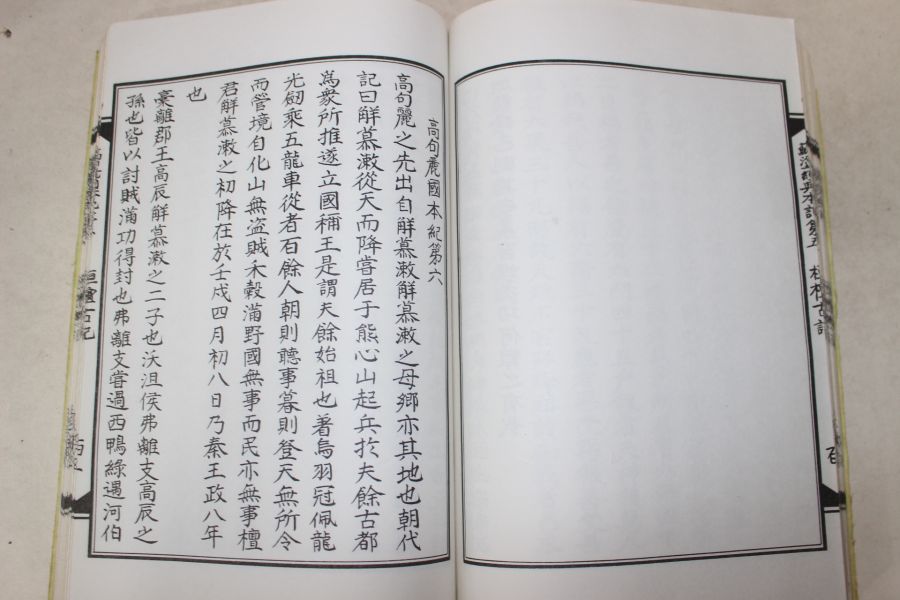 高句麗國本紀第六
高句麗之先出自解慕漱解慕漱之母鄕亦其地也朝代
記曰解慕漱從天而降嘗居于熊心山起兵於夫餘古都
爲衆所推遂立國稱王是謂夫餘始祖也著烏羽冠佩龍
光劒乘五龍車從者百餘人朝則聽事暮則登天無所令
而管境自化山無盜賊禾穀滿野國無事而民亦無事檀
君解慕漱之初降在於壬戌四月初八日乃秦王政八年
也
槀離郡王高辰解慕漱之二子也沃沮侯弗離支高辰之
孫也皆以討賊滿功得封也弗離支嘗過西鴨綠遇河伯
桓檀古記